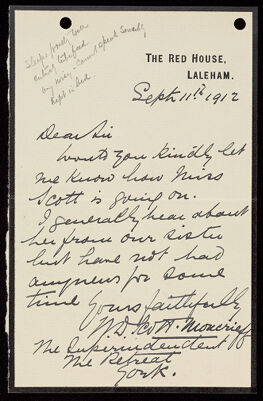 Sleeps poorly
entirely
my
Kept in bed
THE RED HOUSE,
LALEHAM.
Sept 11th 1912
Dear Sir
Would you kindly let
me know how Miss
Scott is going on.
I generally hear about
her from our sister
but have not had
any news for some
time
Yours faithfully
W D Scott-Moncrieff
The Superintendent
The Retreat
York.